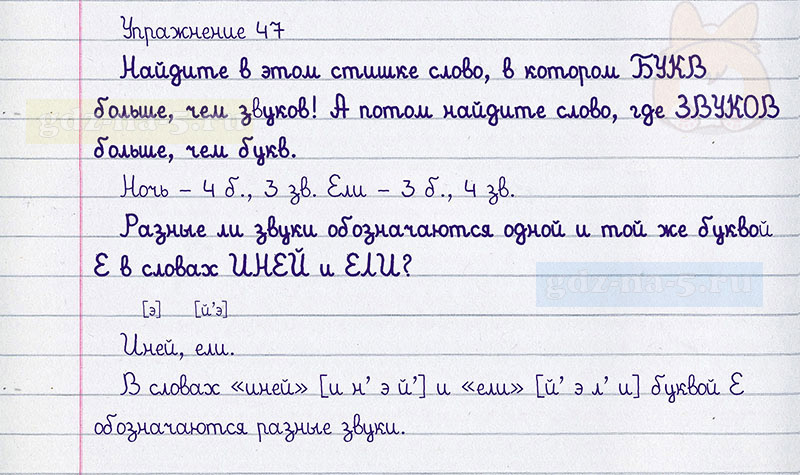 Упражнение 47
Найдите в этом стишке слово, в котором БУКВ
больше, чем звуков! А потом найдите слово, где ЗВУКОВ
больше, чем букв.
gdz-na-5.ru
Ночь – 4 б., 3 зв. Ели – 3 б., 4 зв.
Разные ли звуки обозначаются одной и той же буквой
Е в словах ИНЕЙ и ЕЛИ?
gdz-na-5.ru
[э] [й'э]
Иней, ели.
В словах «иней» [и н' э й'] и «ели» [й' э л' и] буквой Е
обозначаются разные звуки.